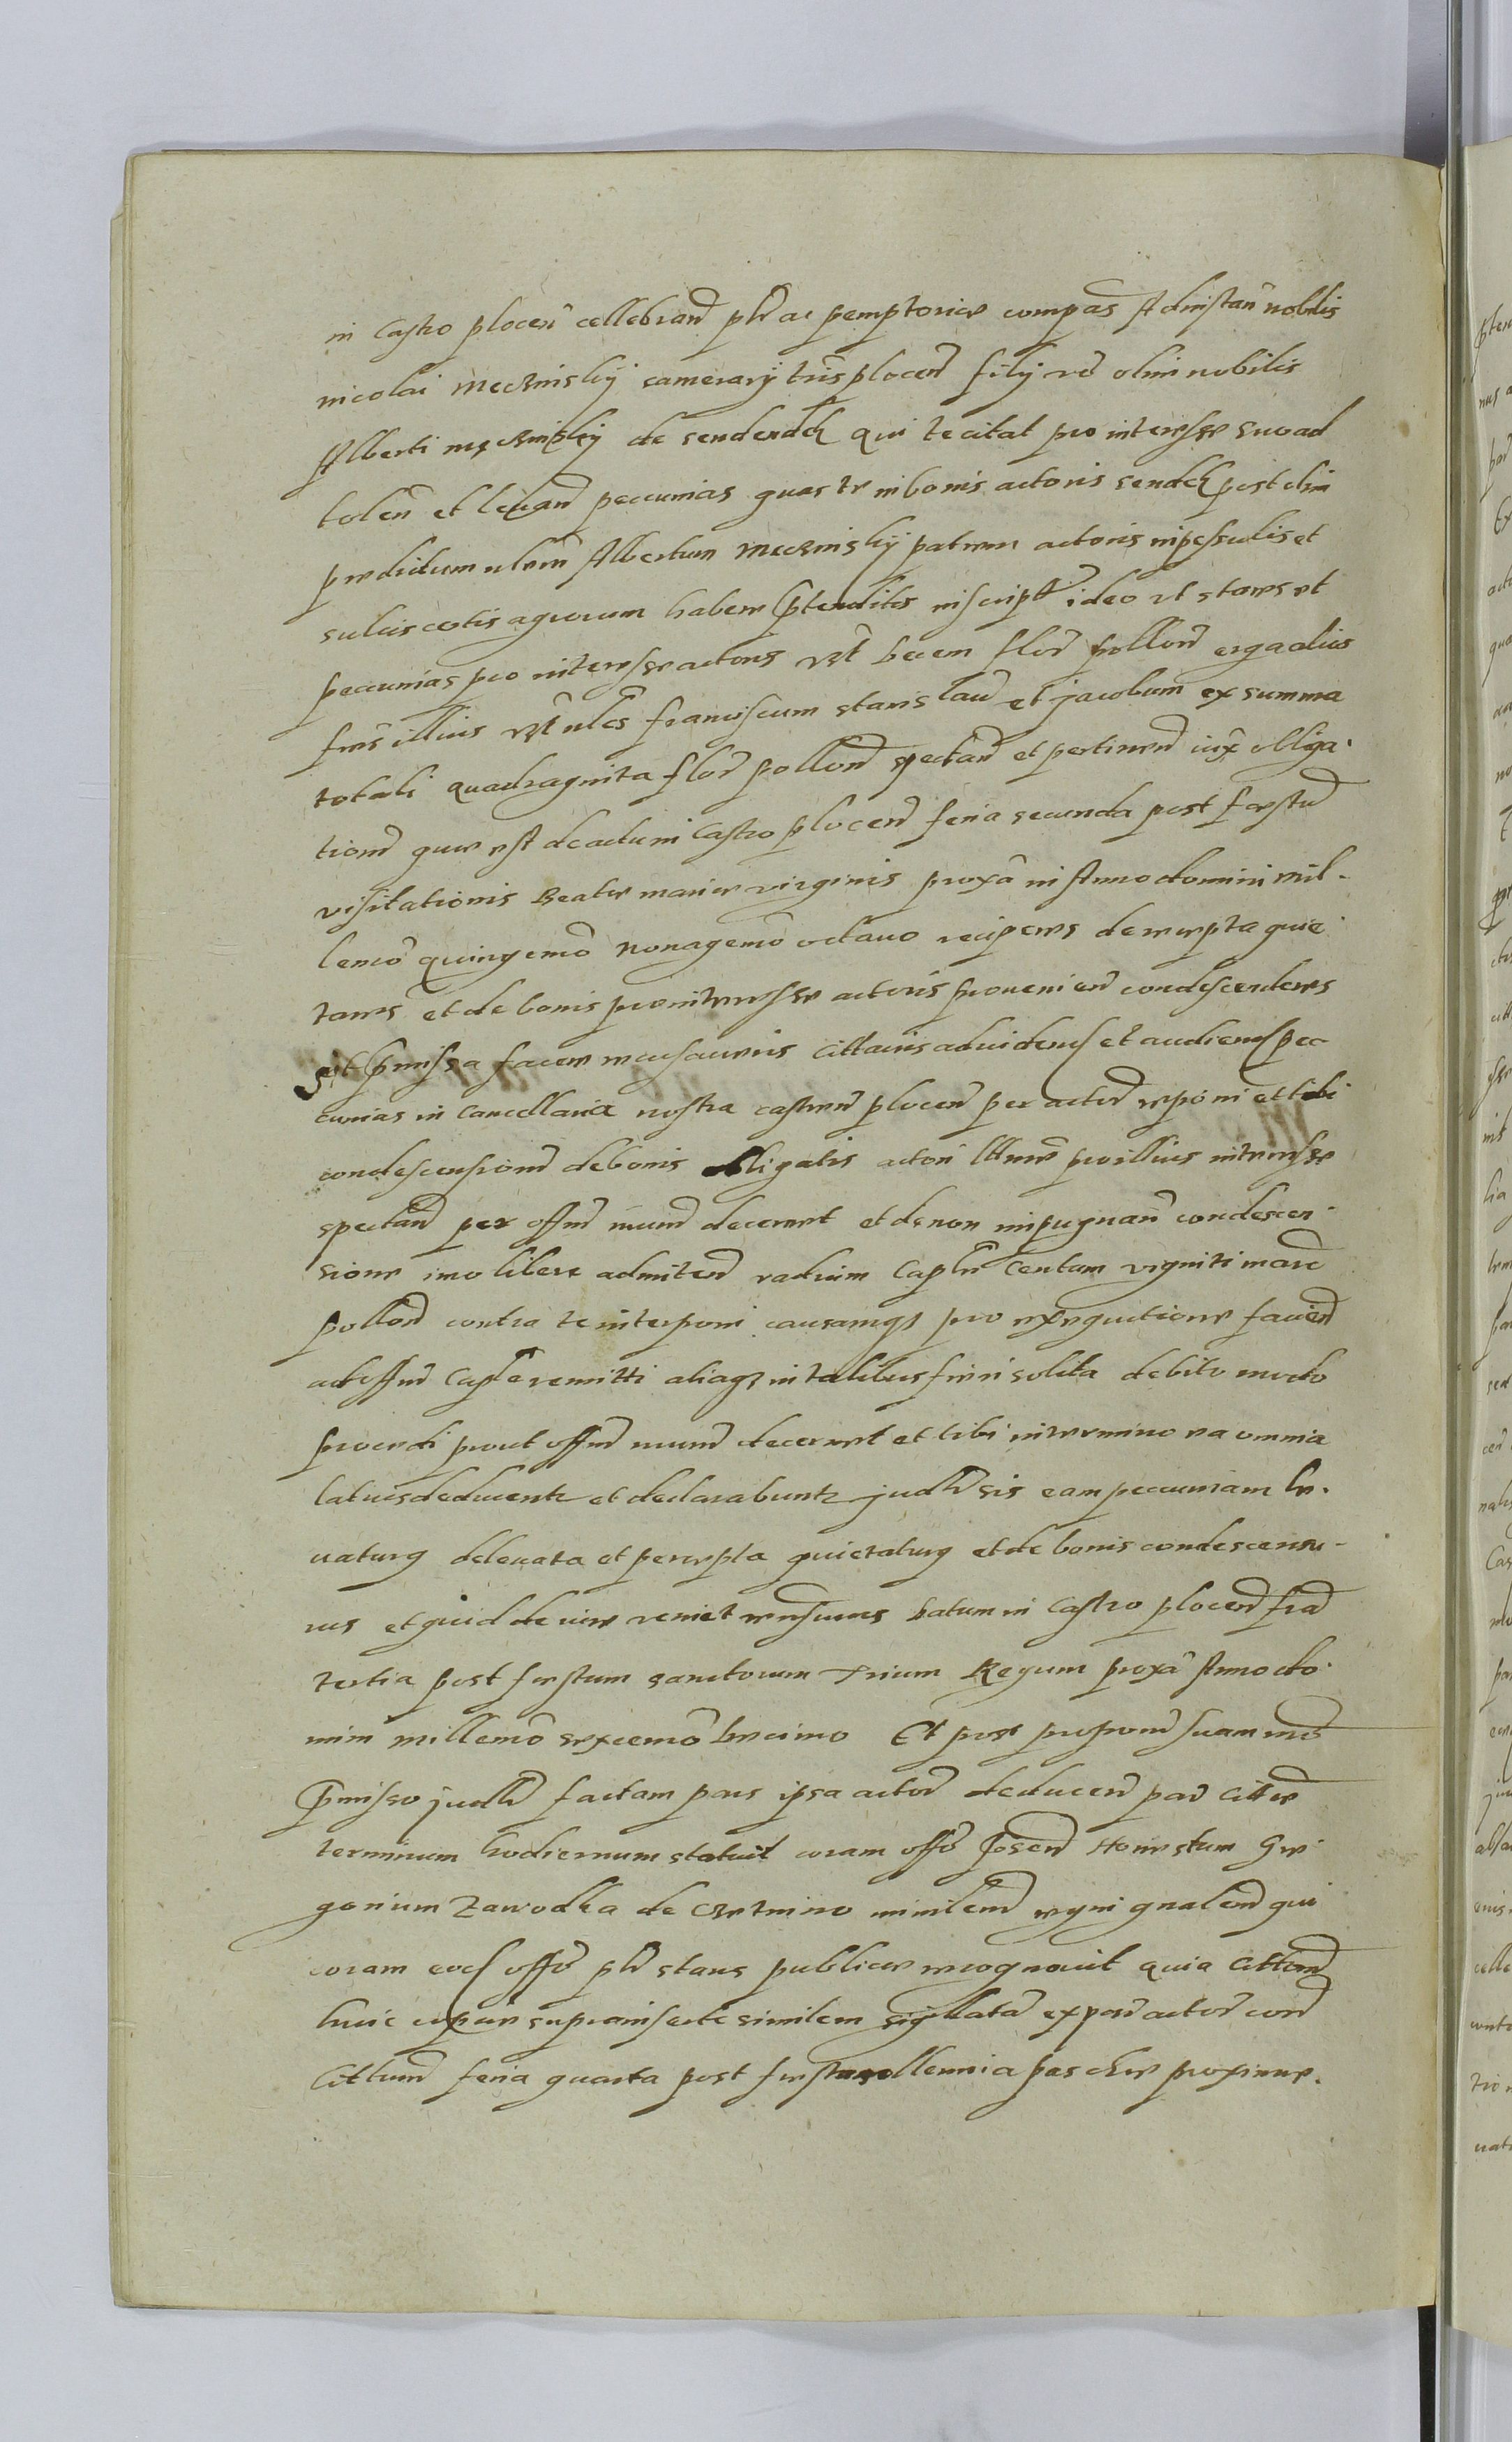 in Castro plocen cellebrand plr ac pemptorie compas Ad instan nobilis
nicolai meczinskij camerarij tris plocen filij olim nobilis
Alberti meczinskij de sendendk qui te citat pro interesse suo ad
tolen et levand peccunias quas tu in bonis actoris sendek post olim
predictum nlem Albertum meczinskij patrem actoris in pessulis et
sulcis certis agrorum habere ptendites inscript ideo ut stares et
peccunias pro interesse actoris vt decem flor pollon erga alios
fres illius vt nles franciscum stanislau et jacobum ex summa
totali quadraginta flor pollon spectan et pertinen iux obliga-
tiom que est de actu in Castro plocen feria secunda post festu
visitationis Beate marie virginis proxa in Anno domini mil-
lemo quingemo nonagemo octavo reciperes de recepta quie
tares et de bonis pro interesse actoris provenien condescenderes
Si pmissa facere recusaveris cittaris ad videns et audiens pec
cunias in cancellaria nostra castren plocen per actor reponi et tibi
condescensionem de bonis obligatis actori pro illius interesse
spectan per offm nrum decerret et de non impugnan condescen-
sione imo libere admitten vadium Captr Centum viginti marc
pollon contra te interponi causamq pro exequutione facien
ad offm Capte remitti aliaq in talibus fieri solita debito modo
procedi prout offm nrum decerret et tibi in termino ea omnia
latius deducentr et declarabuntr judlr sis eam peccuniam le-
vaturq de levata et percepta quietaturq et de bonis condescensu-
rus et quid de iure veniet Datum in Castro plocen fria
tertia post festum sanctorum trium Regum proxa Anno do-
mini millemo sexcemo decimo Et post proponem suam mo
pmisso judlr factam pars ipsa actor deducen par citte
terminum hodiernum statuit coram offo psen Honestum Gre-
gorium Zawodka de Czetnino minilem regni gnalem qui
coram eod offo plr stans publice recognovit quia cittonem
huic supra inserte similem sigillata ex par actor con
Cittum feria quarta post festa sollennia pasche proxime.